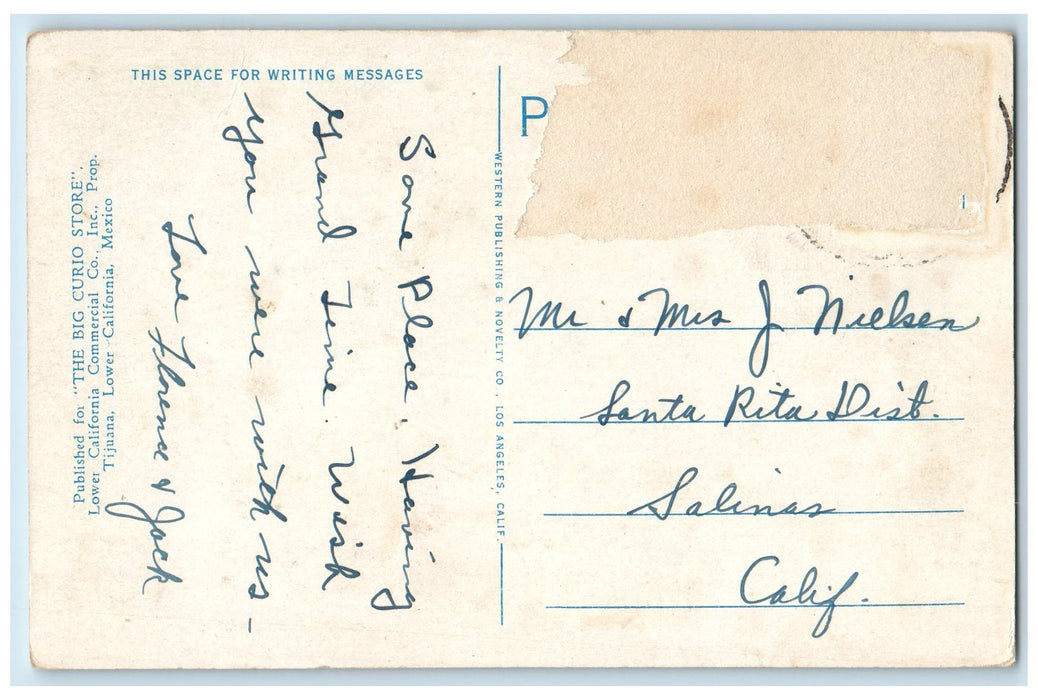 THIS SPACE FOR WRITING MESSAGES
Some Place. Having
Grand Time. Wish
you were with us –
Love Florence & Jack
Published for "THE BIG CURIO STORE".
Lower California Commercial Co., Inc., Prop.
Tijuana, Lower California, Mexico
WESTERN PUBLISHING & NOVELTY CO., LOS ANGELES, CALIF.
P
Mr & Mrs J Nielsen
Santa Rita Dist.
Salinas
Calif.